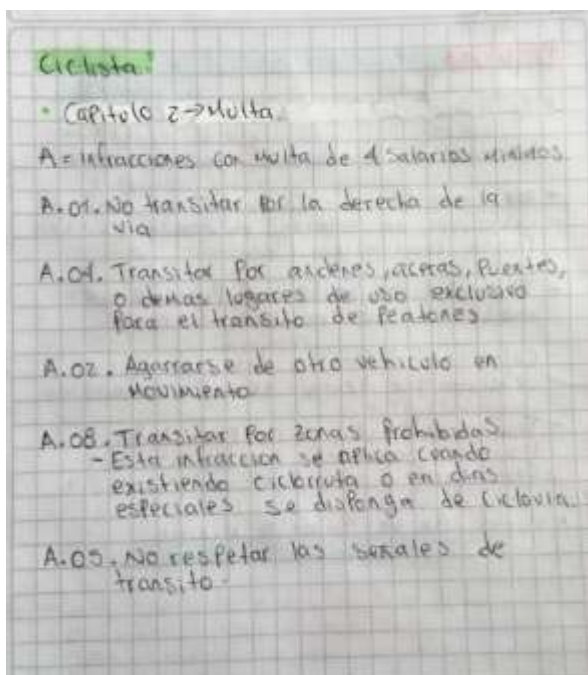 Ciclista:
• Capitulo 2→Multa
A = Infracciones con Multa de 4 Salarios Minimos
A.01. No transitar por la derecha de la
via
A.04. Transitar por andenes, aceras, Puentes,
o demas lugares de uso exclusivo
Para el transito de Peatones
A.02. Agarrarse de otro vehiculo en
Movimiento
A.08. Transitar Por Zonas Prohibidas.
- Esta infraccion se aplica cuando
existiendo ciclorruta o en dias
especiales se disponga de Ciclovia
A.05. No respetar las señales de
transito.